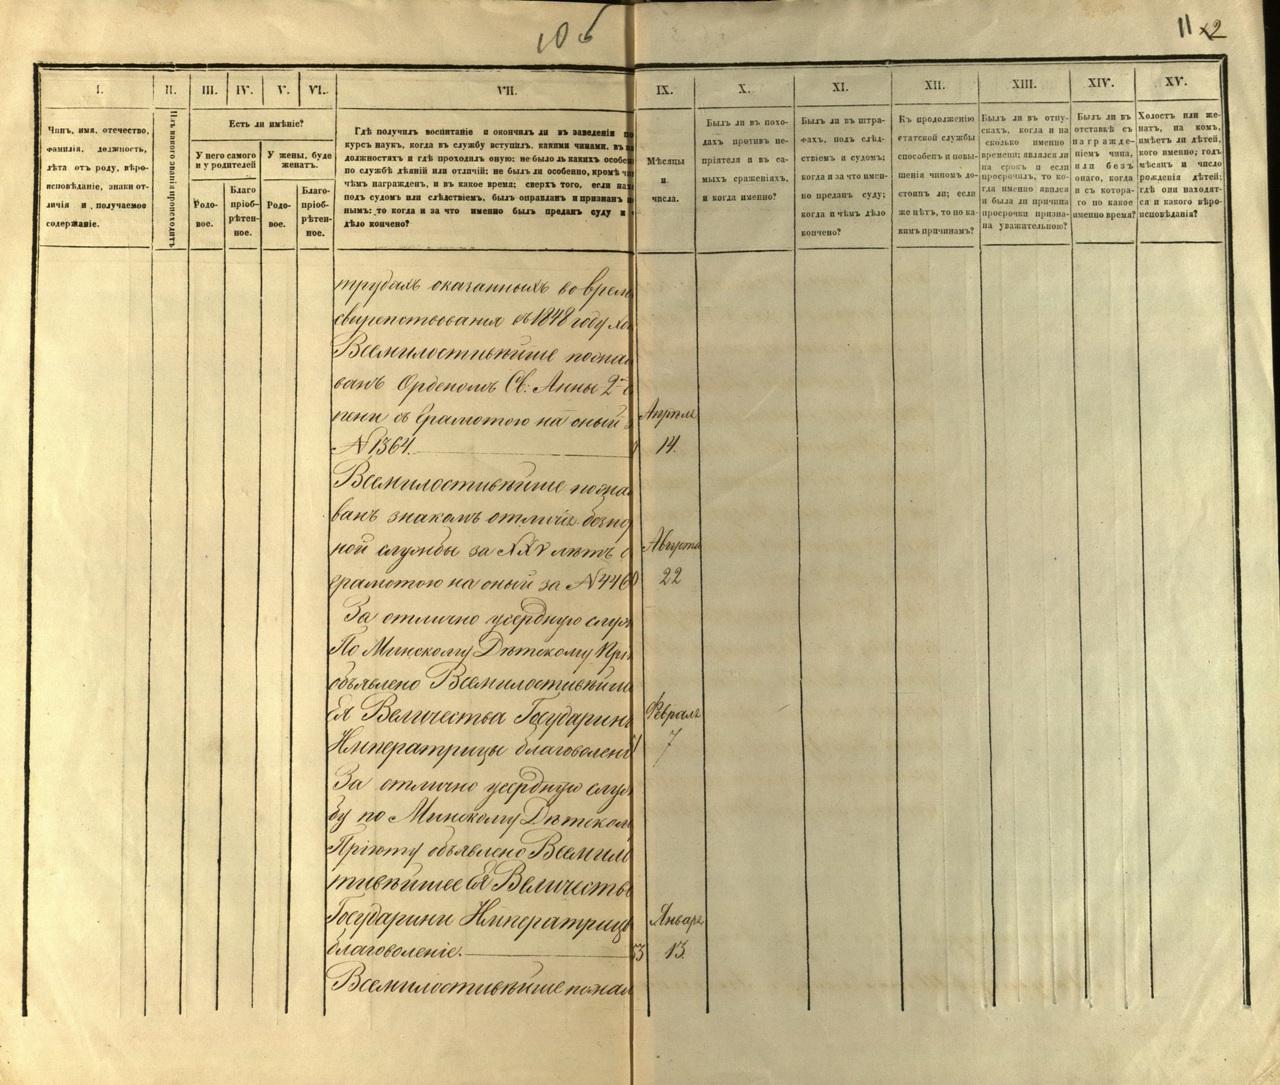 106
11 х2
I.
II.
III.
IV.
V.
VI.
VII.
IX.
X.
XI.
XII.
XIII.
XIV.
XV.
Чинъ, имя, отечество,
фамилія, должность,
лѣта отъ роду, вѣро-
исповѣданіе, знаки от-
личія и получаемое
содержаніе.
Изъ какого званія происходитъ
Есть ли имѣніе?
У него самого
и у родителей
У жены, буде
женатъ.
Родо-
вое.
Благо
пріоб-
рѣтен-
ное.
Родо-
вое.
Благо-
пріоб-
рѣтен-
ное.
Гдѣ получилъ воспитаніе и окончилъ ли въ заведеніи по
курсъ наукъ, когда въ службу вступилъ, какими чинами, въ
должностяхъ и гдѣ проходилъ оную: не было ли какихъ особен
по службѣ дѣяній или отличій; не былъ ли особенно, кромѣ чи
чѣмъ награжденъ, и въ какое время; сверхъ того, если нах
подъ судомъ или слѣдствіемъ, былъ оправданъ и признанъ
нымъ: то когда и за что именно былъ преданъ суду и
дѣло кончено?
Мѣсяцы
и
числа.
Былъ ли въ похо-
дахъ противъ не-
пріятеля и въ са-
мыхъ сраженіяхъ,
и когда именно?
Былъ ли въ штра-
фахъ, подъ слѣд-
ствіемъ и судомъ;
когда и за что имен-
но преданъ суду;
когда и чѣмъ дѣло
кончено?
Къ продолженію
статской службы
способенъ и повы-
шенія чиномъ до-
стоинъ ли; если
же нѣтъ, то по ка-
кимъ причинамъ?
Былъ ли въ отпу-
скахъ, когда и на
сколько именно
времени; являлся ли
на срокъ и если
просрочилъ, то ко-
гда именно явился
и была ли причина
просрочки призна-
на уважительною?
Былъ ли въ
отставкѣ съ
награжде-
ніемъ чина,
или безъ
онаго, когда
и съ котора-
го по какое
именно время?
Холостъ или же-
натъ, на комъ,
имѣетъ ли дѣтей,
кого именно; годъ,
мѣсяцъ и число
рожденія дѣтей;
гдѣ они находят-
ся и какого вѣро-
исповѣданія?
трудахъ оказанныхъ во врем
свирепствованія въ 1848 году хо
Всемилостивѣйше пожал
ванъ Орденомъ Св: Анны 2й с
пени съ грамотою на оный
Апрѣля
№ 1364.
14.
Всемилостивѣйше пожал
ванъ знакомъ отличія безпо
ной службы за XXV лѣтъ с
Августа
грамотою на оный за № 4460
22
За отлично усердную служ
По Минскому Дѣтскому Прі
объявлено Всемилостивѣйше
Ея Величества Государын
Февраля
Императрицы благоволені
7
За отлично усердную служ
бу по Минскому Дѣтском
Пріюту объявлено Всемило
тивѣйшее Ея Величеств
Государыни Императриц
Января
благоволеніе.
53
13.
Всемилостивѣйше пожал